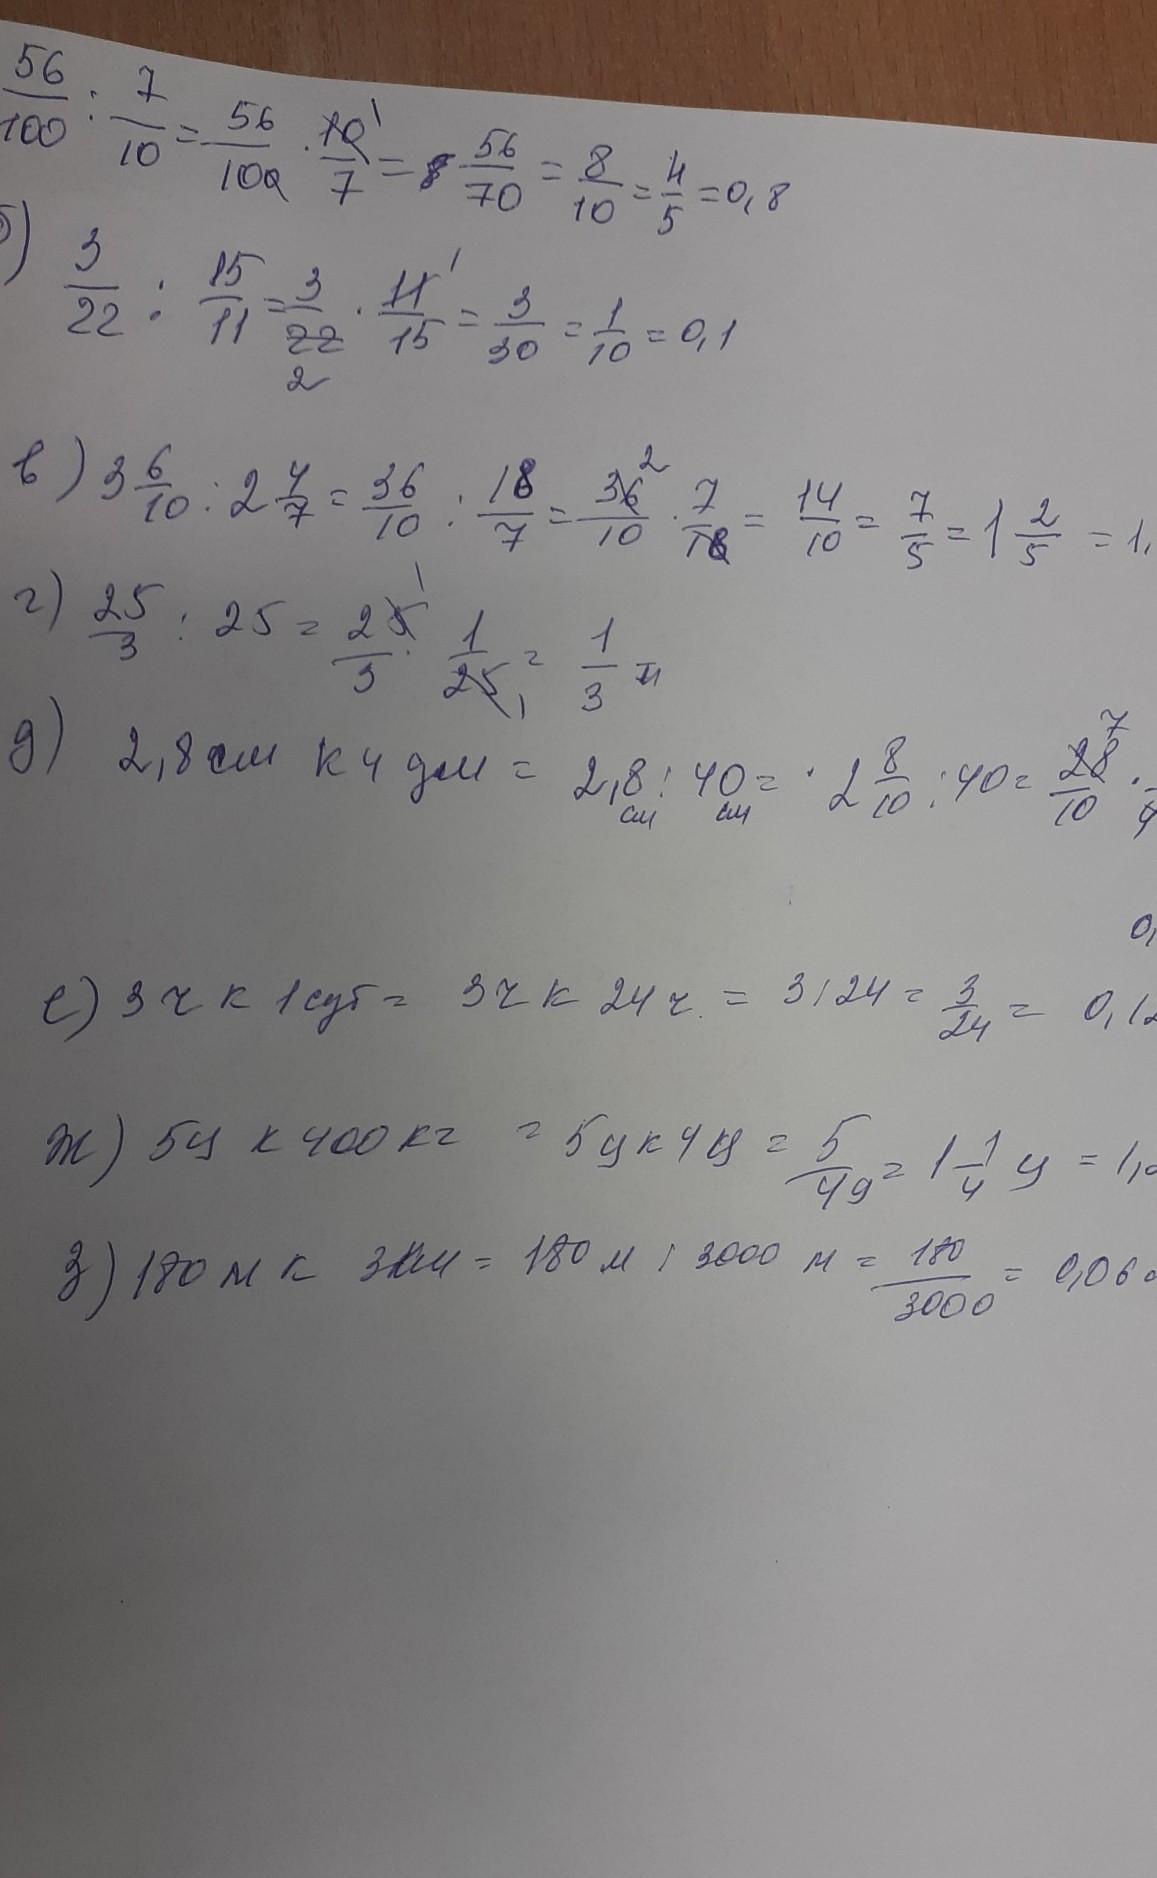 56/100 : 7/10 = 56/100 · 10/7 = 56/70 = 8/10 = 4/5 = 0,8
б) 3/22 : 15/11 = 3/22 · 11/15 = 3/30 = 1/10 = 0,1
в) 3 6/10 : 2 4/7 = 36/10 : 18/7 = 36/10 · 7/18 = 14/10 = 7/5 = 1 2/5 = 1,
г) 25/3 : 25 = 25/3 · 1/25 = 1/3
д) 2,8 см к 4 дм = 2,8 см : 40 см = 2 8/10 : 40 = 28/10 ·
0,
е) 3 ч к 1 сут = 3 ч к 24 ч = 3 : 24 = 3/24 = 0,12
ж) 5 ц к 400 кг = 5 ц к 4 ц = 5/4 = 1 1/4 ц = 1,
з) 180 м к 3 км = 180 м : 3000 м = 180/3000 = 0,06